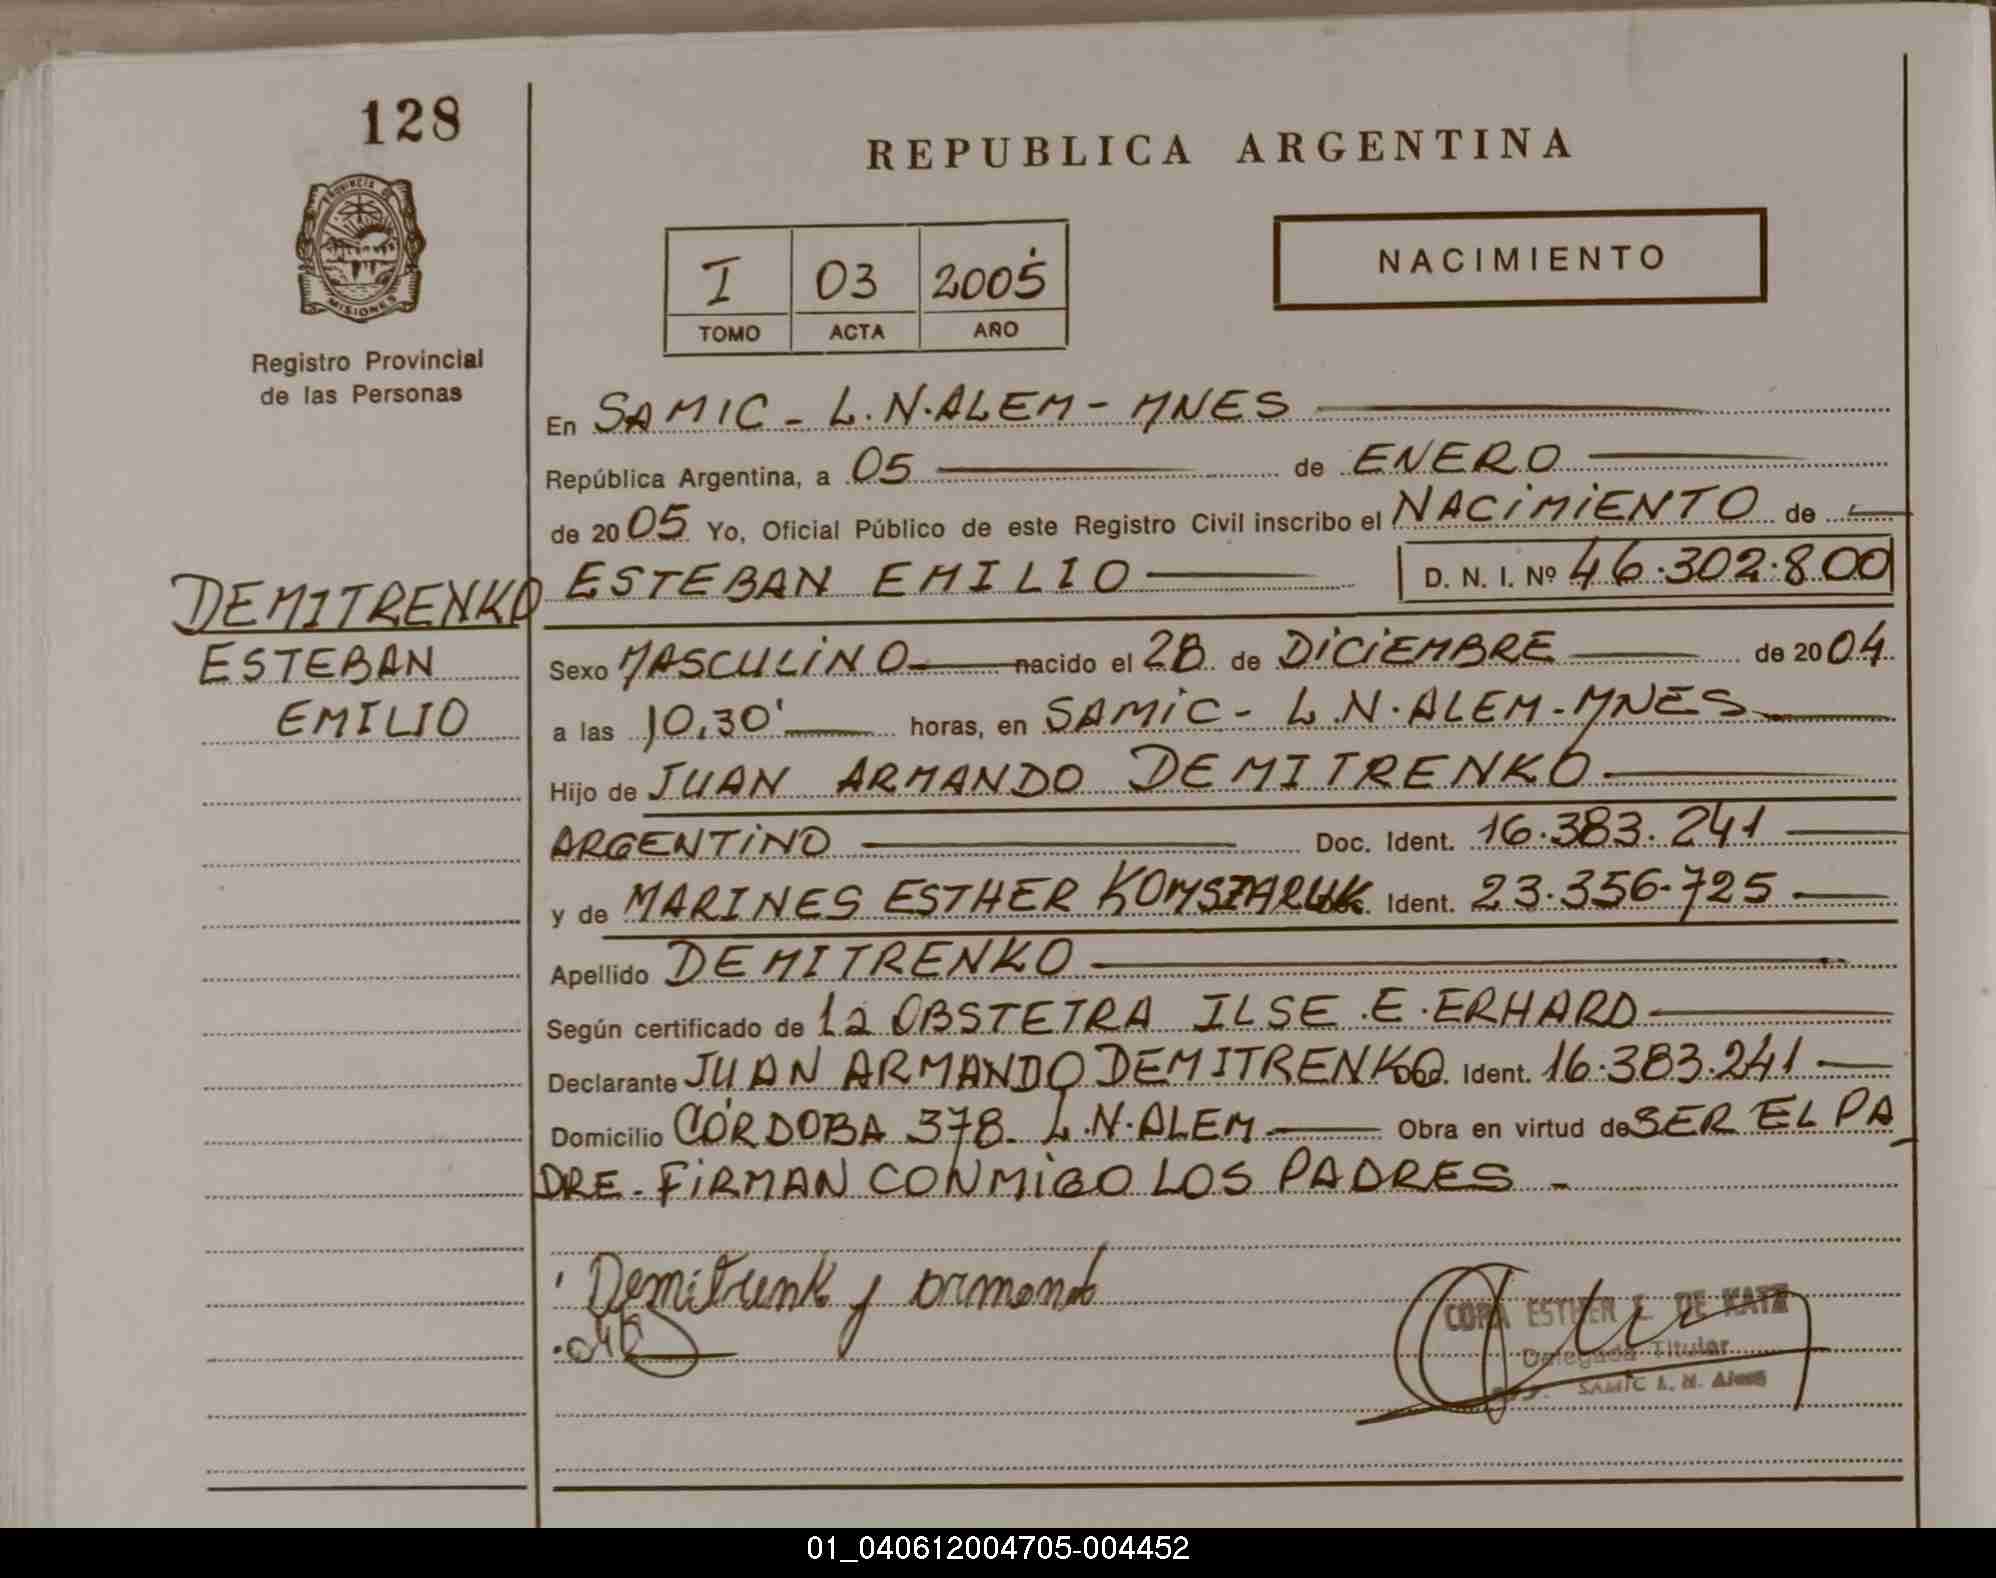 128
REPUBLICA ARGENTINA
PROVINCIA DE
MISIONES
Registro Provincial
de las Personas
I 03 2005
TOMO ACTA AÑO
NACIMIENTO
En SAMIC - L.N.ALEM - MNES
República Argentina, a 05 de ENERO
de 2005 Yo, Oficial Público de este Registro Civil inscribo el NACIMIENTO de
ESTEBAN EMILIO D. N. I. Nº 46.302.800
DEMITRENKO
ESTEBAN
EMILIO
Sexo MASCULINO nacido el 28 de DICIEMBRE de 2004
a las 10,30' horas, en SAMIC - L.N.ALEM - MNES
Hijo de JUAN ARMANDO DEMITRENKO
ARGENTINO Doc. Ident. 16.383.241
y de MARINES ESTHER Doc. Ident. 23.356.725
Apellido DEMITRENKO
Según certificado de La OBSTETRA ILSE.E.ERHARD
Declarante JUAN ARMANDO DEMITRENKO Doc. Ident. 16.383.241
Domicilio CÓRDOBA 378 - L.N.ALEM Obra en virtud de SER EL PA
DRE - FIRMAN CONMIGO LOS PADRES -
CORA ESTHER L. DE KATZ
Delegada Titular
SAMIC L. N. Alem
01_040612004705-004452